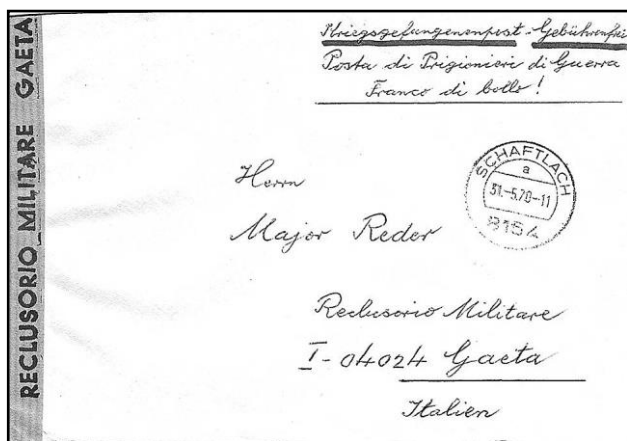 RECLUSORIO MILITARE GAETA
Kriegsgefangenenpost - Gebührenfrei
Posta di Prigionieri di Guerra
Franco di bollo!
SCHAFTLACH
a
31.-5.70-11
8154
Herrn
Major Reder
Reclusorio Militare
I-04024 Gaeta
Italien